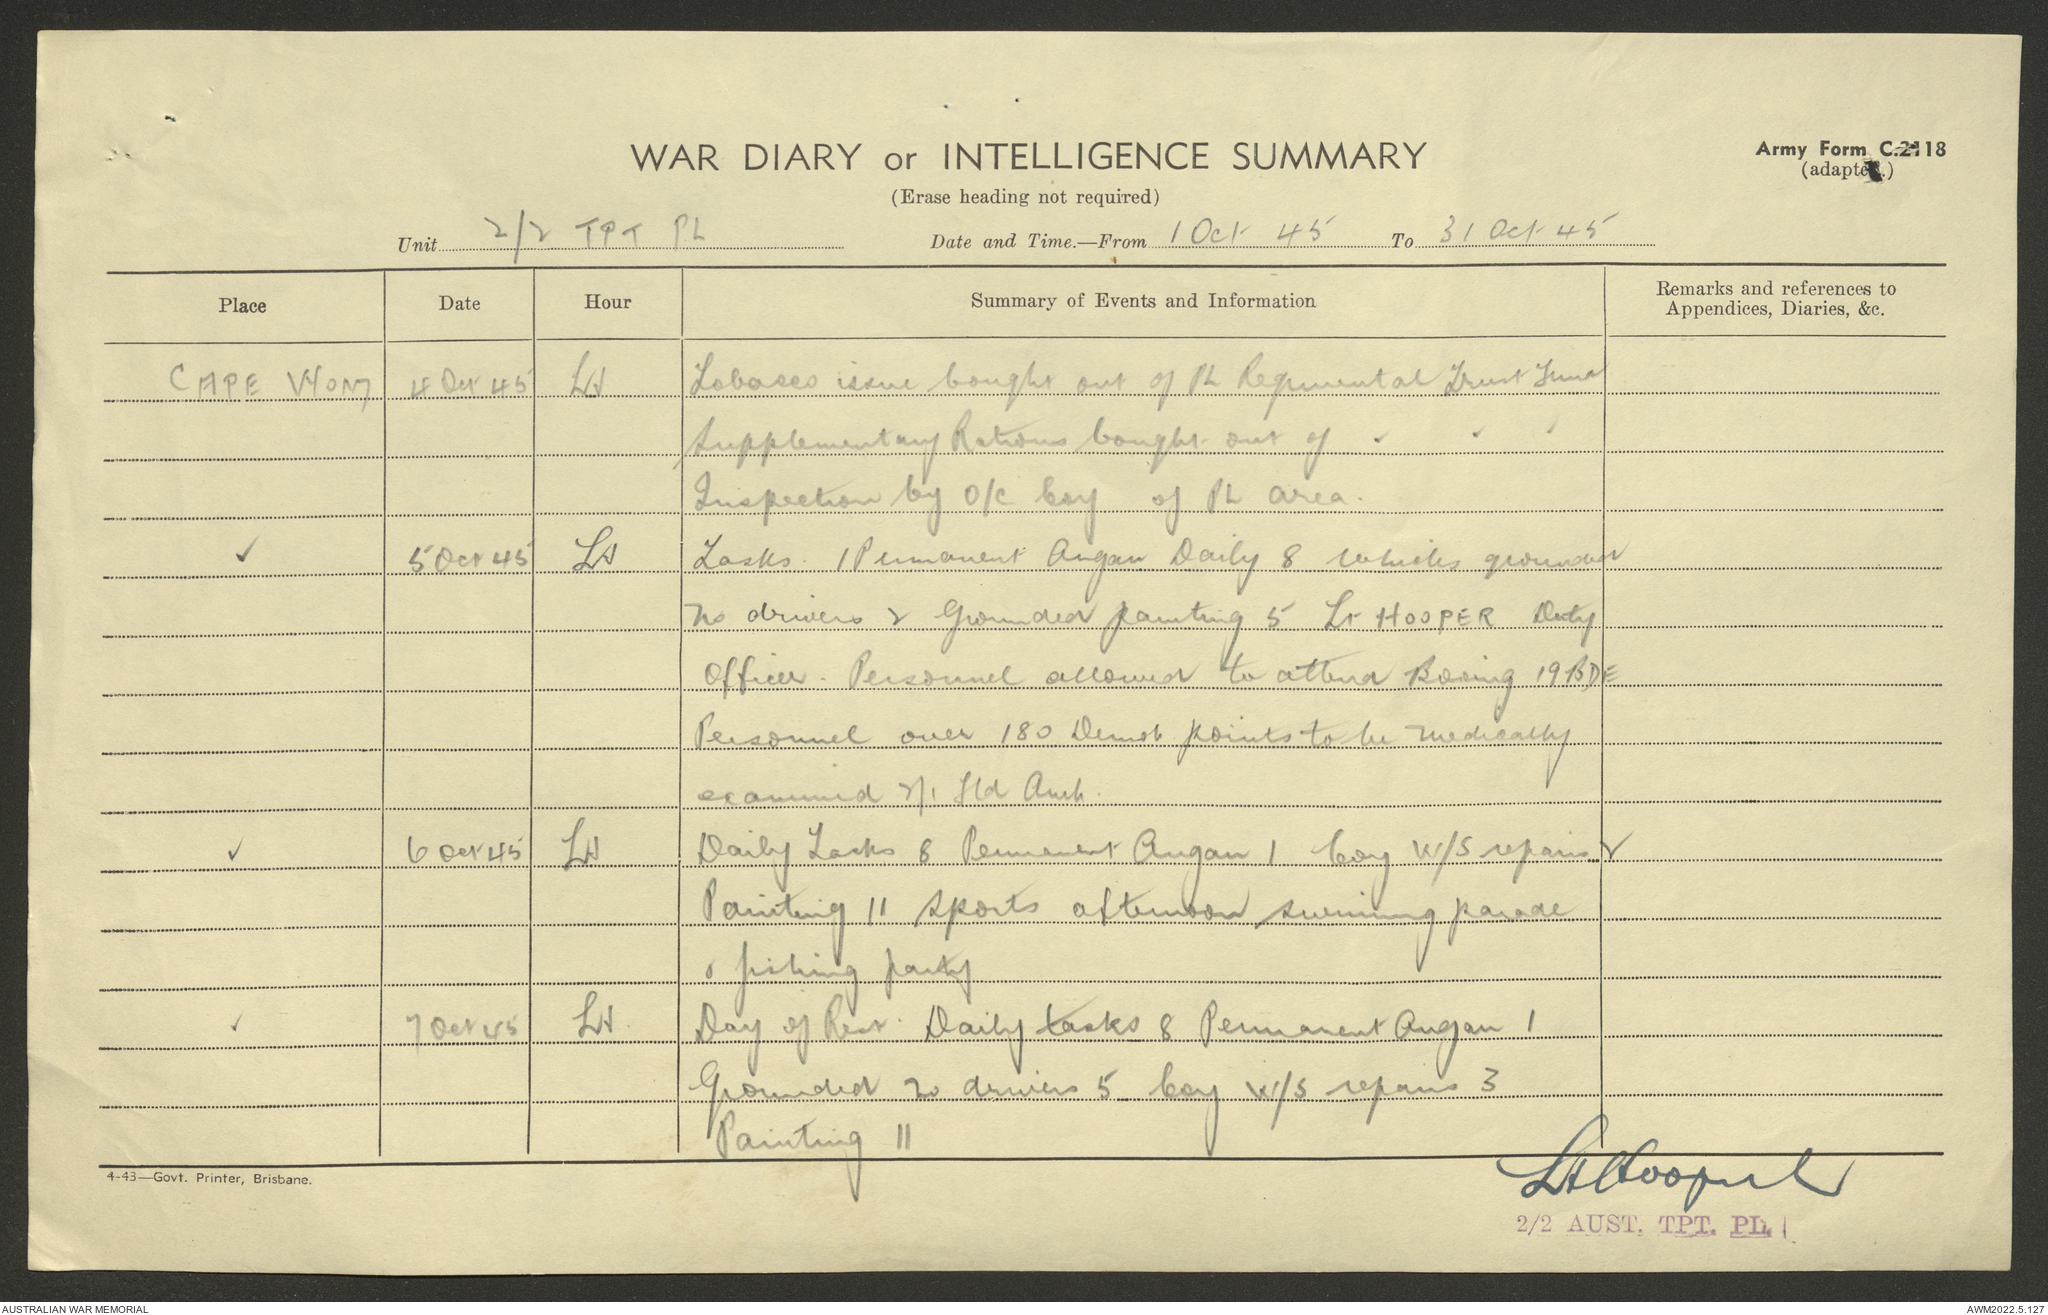 WAR DIARY or INTELLIGENCE SUMMARY
Army Form C.2118
(adapted.)
(Erase heading not required)
Unit 2/2 TPT PL Date and Time.—From 1 Oct 45 To 31 Oct 45
Place Date Hour Summary of Events and Information Remarks and references to
Appendices, Diaries, &c.
CAPE WOM 4 Oct 45 LH Tobacco issue bought out of PL Regimental Trust Fund
Supplementary Rations bought out of " " "
Inspection by O/C Coy of PL area.
✓ 5 Oct 45 LH Tasks. 1 Permanent Angau Daily 8 vehicles grounded
no drivers 2 Grounded painting 5 Lt HOOPER Duty
Officer. Personnel allowed to attend Boxing 19 BDE
Personnel over 180 Demob points to be medically
examined 2/1 Fld Amb.
✓ 6 Oct 45 LH Daily Tasks 8 Permanent Angau 1 Coy W/S repairs 2
Painting 11 Sports afternoon swimming parade
& fishing party
✓ 7 Oct 45 LH. Day of Rest. Daily tasks 8 Permanent Angau 1
Grounded no drivers 5 Coy W/S repairs 3
Painting 11
4-43—Govt. Printer, Brisbane.
LHHooper Lt
2/2 AUST. TPT. PL.
AUSTRALIAN WAR MEMORIAL
AWM2022.5.127